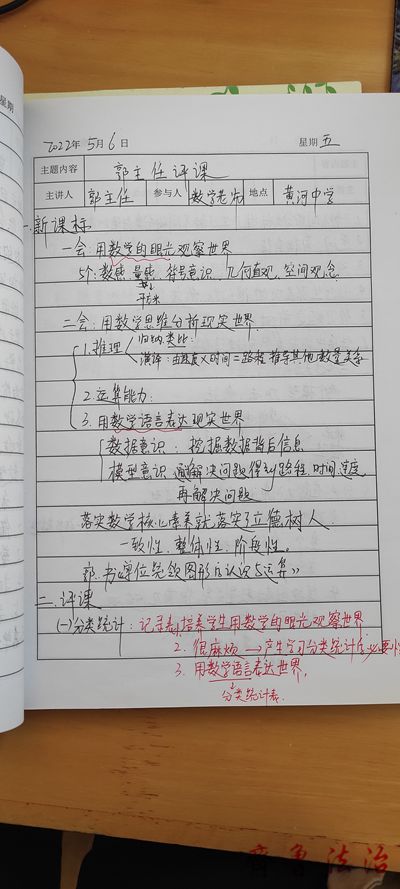 星期
2022年5月6日 星期 五
主题内容 郭主任评课
主讲人 郭主任 参与人 数学老师 地点 黄河中学
一、新课标
一会:用数学的眼光观察世界
5个:数感 量感 符号意识 几何直观 空间观念
平方米
二会:用数学思维分析现实世界
1.推理 归纳:类比
演绎:由速度×时间=路程 推导其他数量关系
2.运算能力:
3.用数学语言表达现实世界
数据意识:挖掘数据背后信息
模型意识 解决问题得到路程,时间,速度
再解决问题
落实数学核心素养就落实了立德树人
一致性,整体性,阶段性。
二.评课
(一)分类统计:记录表1.培养学生用数学的眼光观察世界
2.很麻烦→产生学习分类统计的必要性
3.用数学语言表达世界,
分类统计表.
齐鲁法治